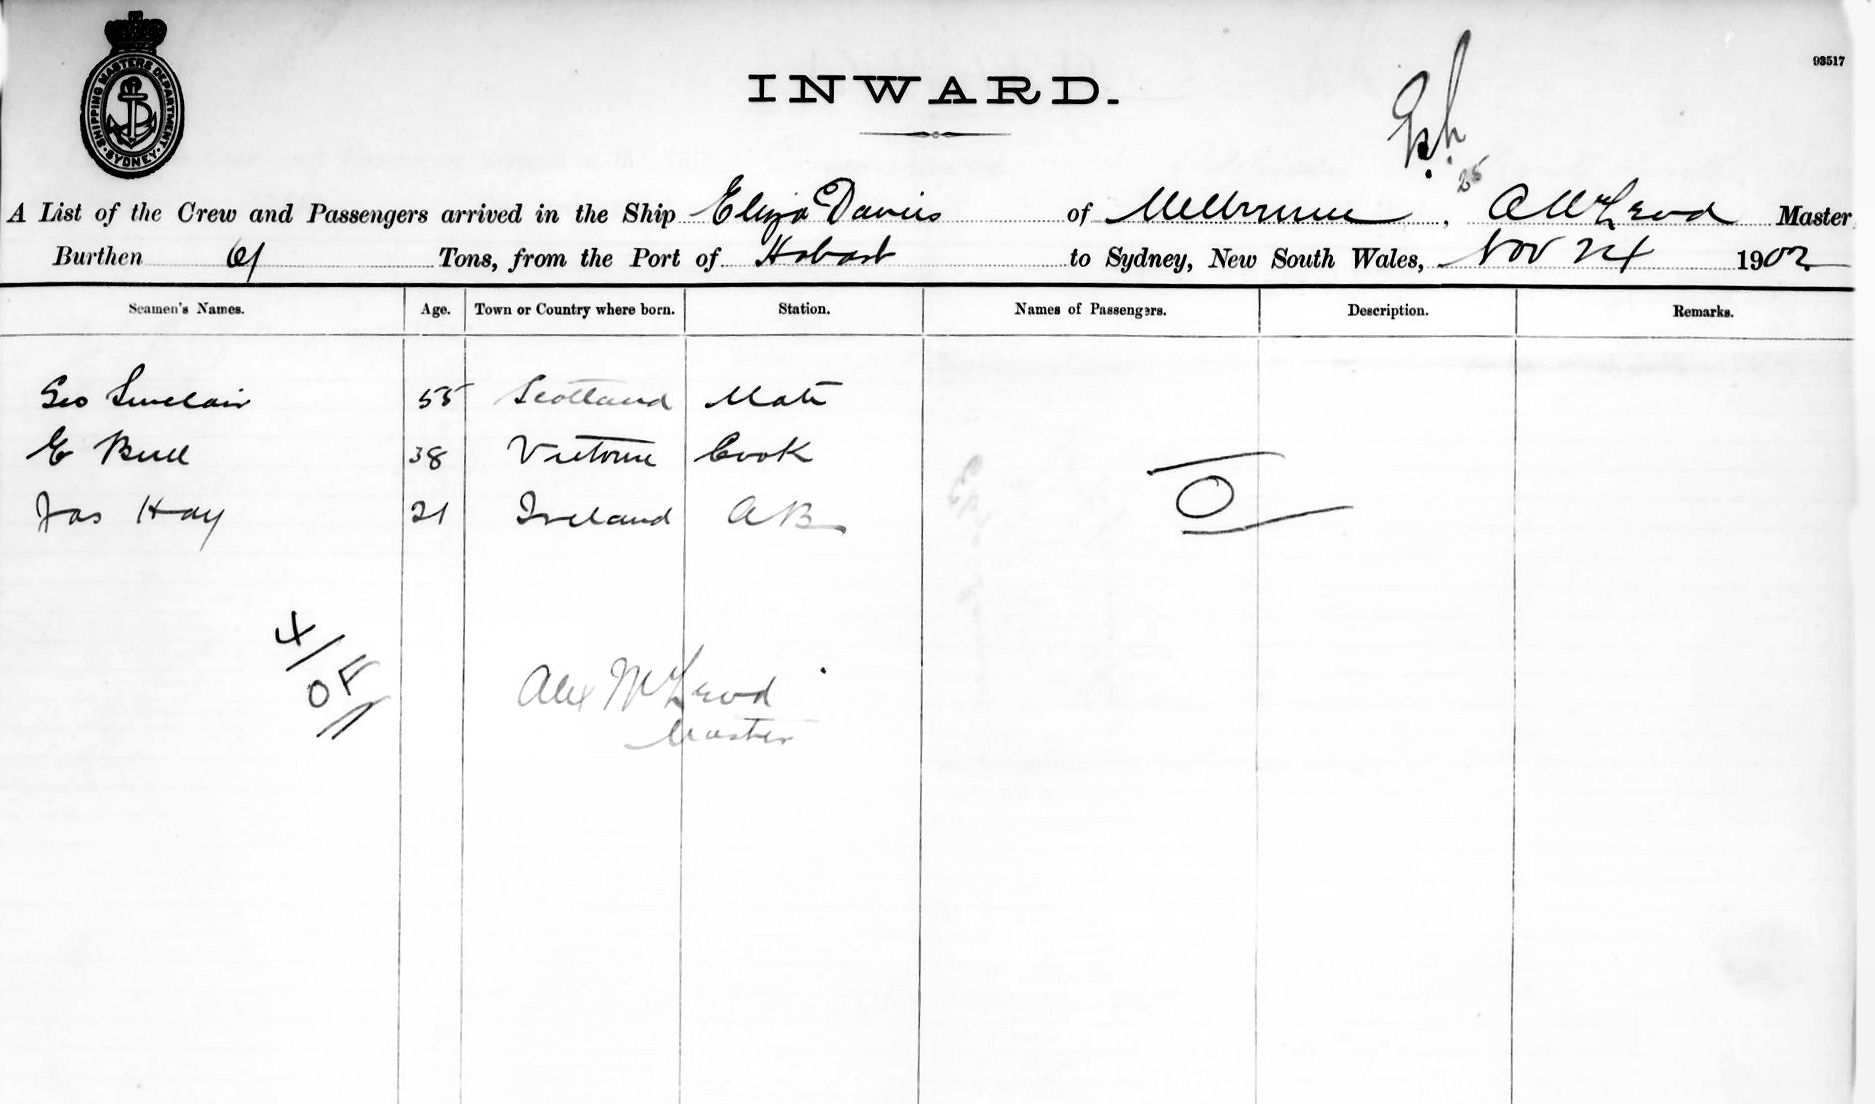 SHIPPING MASTERS DEPARTMENT
SYDNEY
93517
INWARD.
25
A List of the Crew and Passengers arrived in the Ship Eliza Davies of Melbourne, A McLeod Master
Burthen 61 Tons, from the Port of Hobart to Sydney, New South Wales, Nov 24 1902
Seamen's Names. Age. Town or Country where born. Station. Names of Passengers. Description. Remarks.
Geo Sinclair 55 Scotland Mate
E Bull 38 Victoria Cook
O
Jas Hay 21 Ireland AB
4/
OF
Alex McLeod
Master